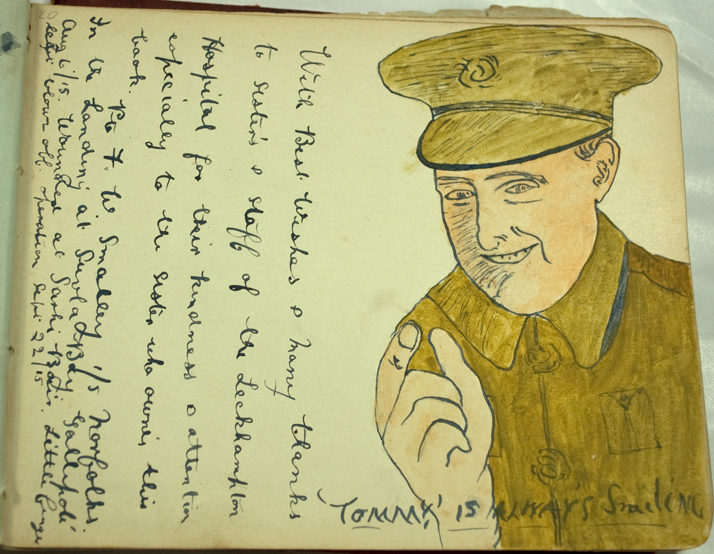 With Best Wishes & many thanks
to Sisters & staff of the Leckhampton
Hospital for their kindness & attention
especially to the Sister who owns this
book.
Pte F. W Smalley 1/5 Norfolks.
In the Landing at Suvla Bay Gallipoli
Aug 6/15. Wounded at Sari Bair. Little finger
blown off. operation Sept 22/15
'TOMMY' IS ALWAYS SmiliNG